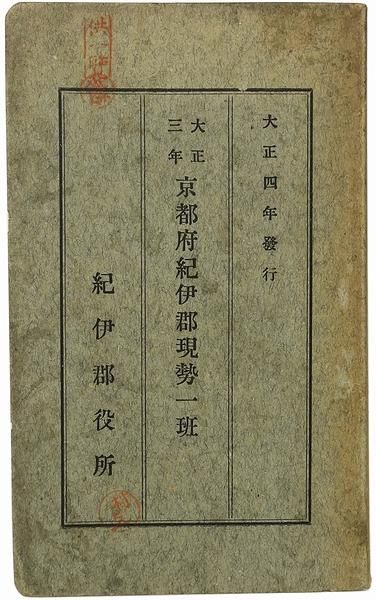 大正四年發行
大正三年 京都府紀伊郡現勢一班
紀伊郡役所